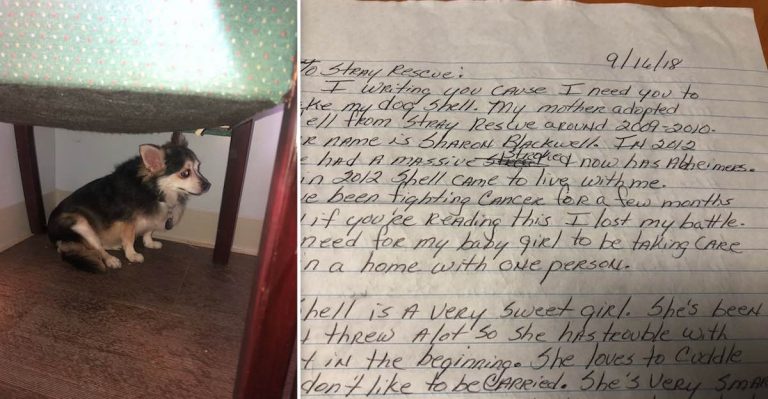 9/16/18
To Stray Rescue:
I writing you cause I need you to
ke my dog Shell. My mother adopted
ell from Stray Rescue around 2009-2010.
R name is Sharon Blackwell. In 2012
e had a massive Stroke d now has Alzheimers.
in 2012 Shell came to live with me.
ve been fighting Cancer for a few months
if you're reading this I lost my battle.
need for my baby girl to be taking care
n a home with one person.
hell is a very sweet girl. She's been
threw alot so she has trouble with
t in the beginning. She loves to cuddle
don't like to be carried. She's very smar